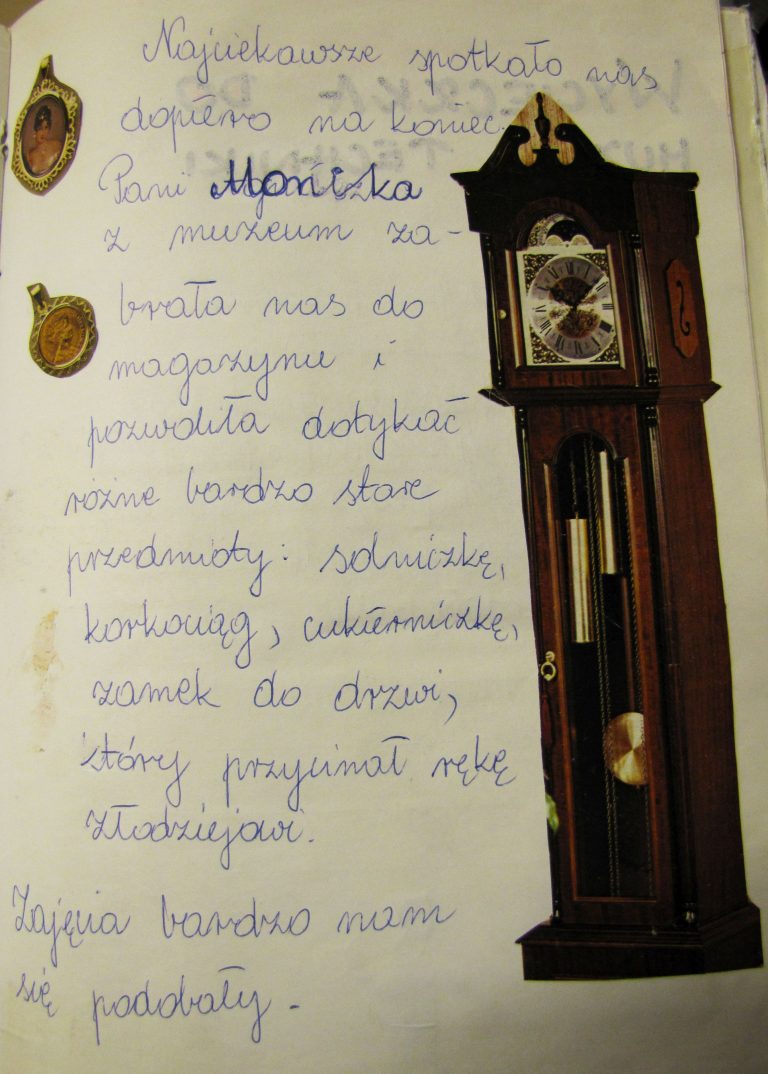 Najciekawsze spotkało nas
dopiero na koniec.
Pani Moniczka
z muzeum za-
brała nas do
magazynu i
pozwoliła dotykać
różne bardzo stare
przedmioty: solniczkę,
korkociąg, cukierniczkę,
zamek do drzwi,
który przycinał rękę
złodziejowi.
Zajęcia bardzo nam
się podobały.
WYCIECZKA DO
TECHNIKI